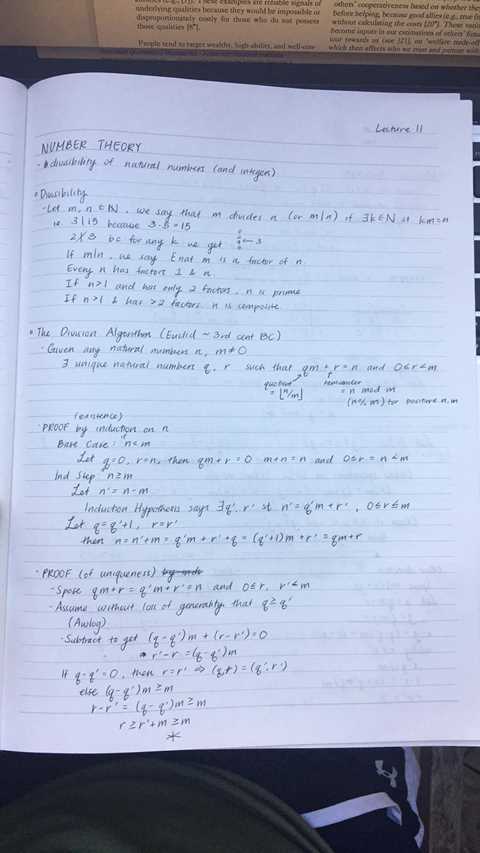 underlying qualities because they would be impossible or
disproportionately costly for those who do not possess
those qualities [8*].
People tend to target wealthy, high-ability, and well-con-
others' cooperativeness based on whether they
before helping, because good allies (e.g., true fr
without calculating the costs [20*]. These vari
become inputs in our estimations of others'
your towards us (see [21], on 'welfare trade-off
which then affects who we trust and partner with
Lecture 11
NUMBER THEORY
- divisibility of natural numbers (and integers)
Divisibility
- Let m, n ∈ ℕ. we say that m divides n (or m|n) if ∃k∈ℕ st km=n
ie 3|15 because 3·5=15
2∤3 bc for any k we get ← 3
If m|n, we say that m is a factor of n.
Every n has factors 1 & n.
If n>1 and has only 2 factors, n is prime
If n>1 & has >2 factors n is composite.
The Division Algorithm (Euclid ~ 3rd cent BC)
- Given any natural numbers n, m≠0
∃ unique natural numbers q, r such that qm + r = n and 0≤r<m
quotient = ⌊n/m⌋
remainder = n mod m
(n% m) for positive n, m
(existence)
- PROOF by induction on n
Base Case: n<m
Let q=0, r=n, then qm+r = 0·m+n=n and 0≤r=n<m
Ind Step: n≥m
Let n'=n-m.
Induction Hypothesis says ∃q', r' st n'=q'm+r', 0≤r≤m
Let q=q'+1, r=r'
then n=n'+m = q'm + r' + q = (q'+1)m + r' = qm+r
- PROOF (of uniqueness) by indu
- Spose qm+r = q'm+r'=n and 0≤r, r'<m
- Assume without loss of generality that q≥q'
(Awlog)
- Subtract to get (q-q')m + (r-r')=0
r'-r = (q-q')m
If q-q'=0, then r=r' ⇒ (q,r)=(q',r')
else (q-q')m≥m
r-r' = (q-q')m≥m
r≥r'+m≥m